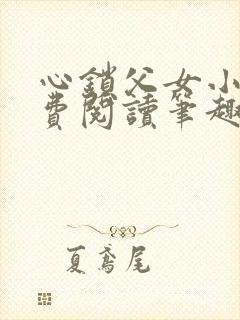 心鎖父女小
費閱讀筆趣
夏鳶尾